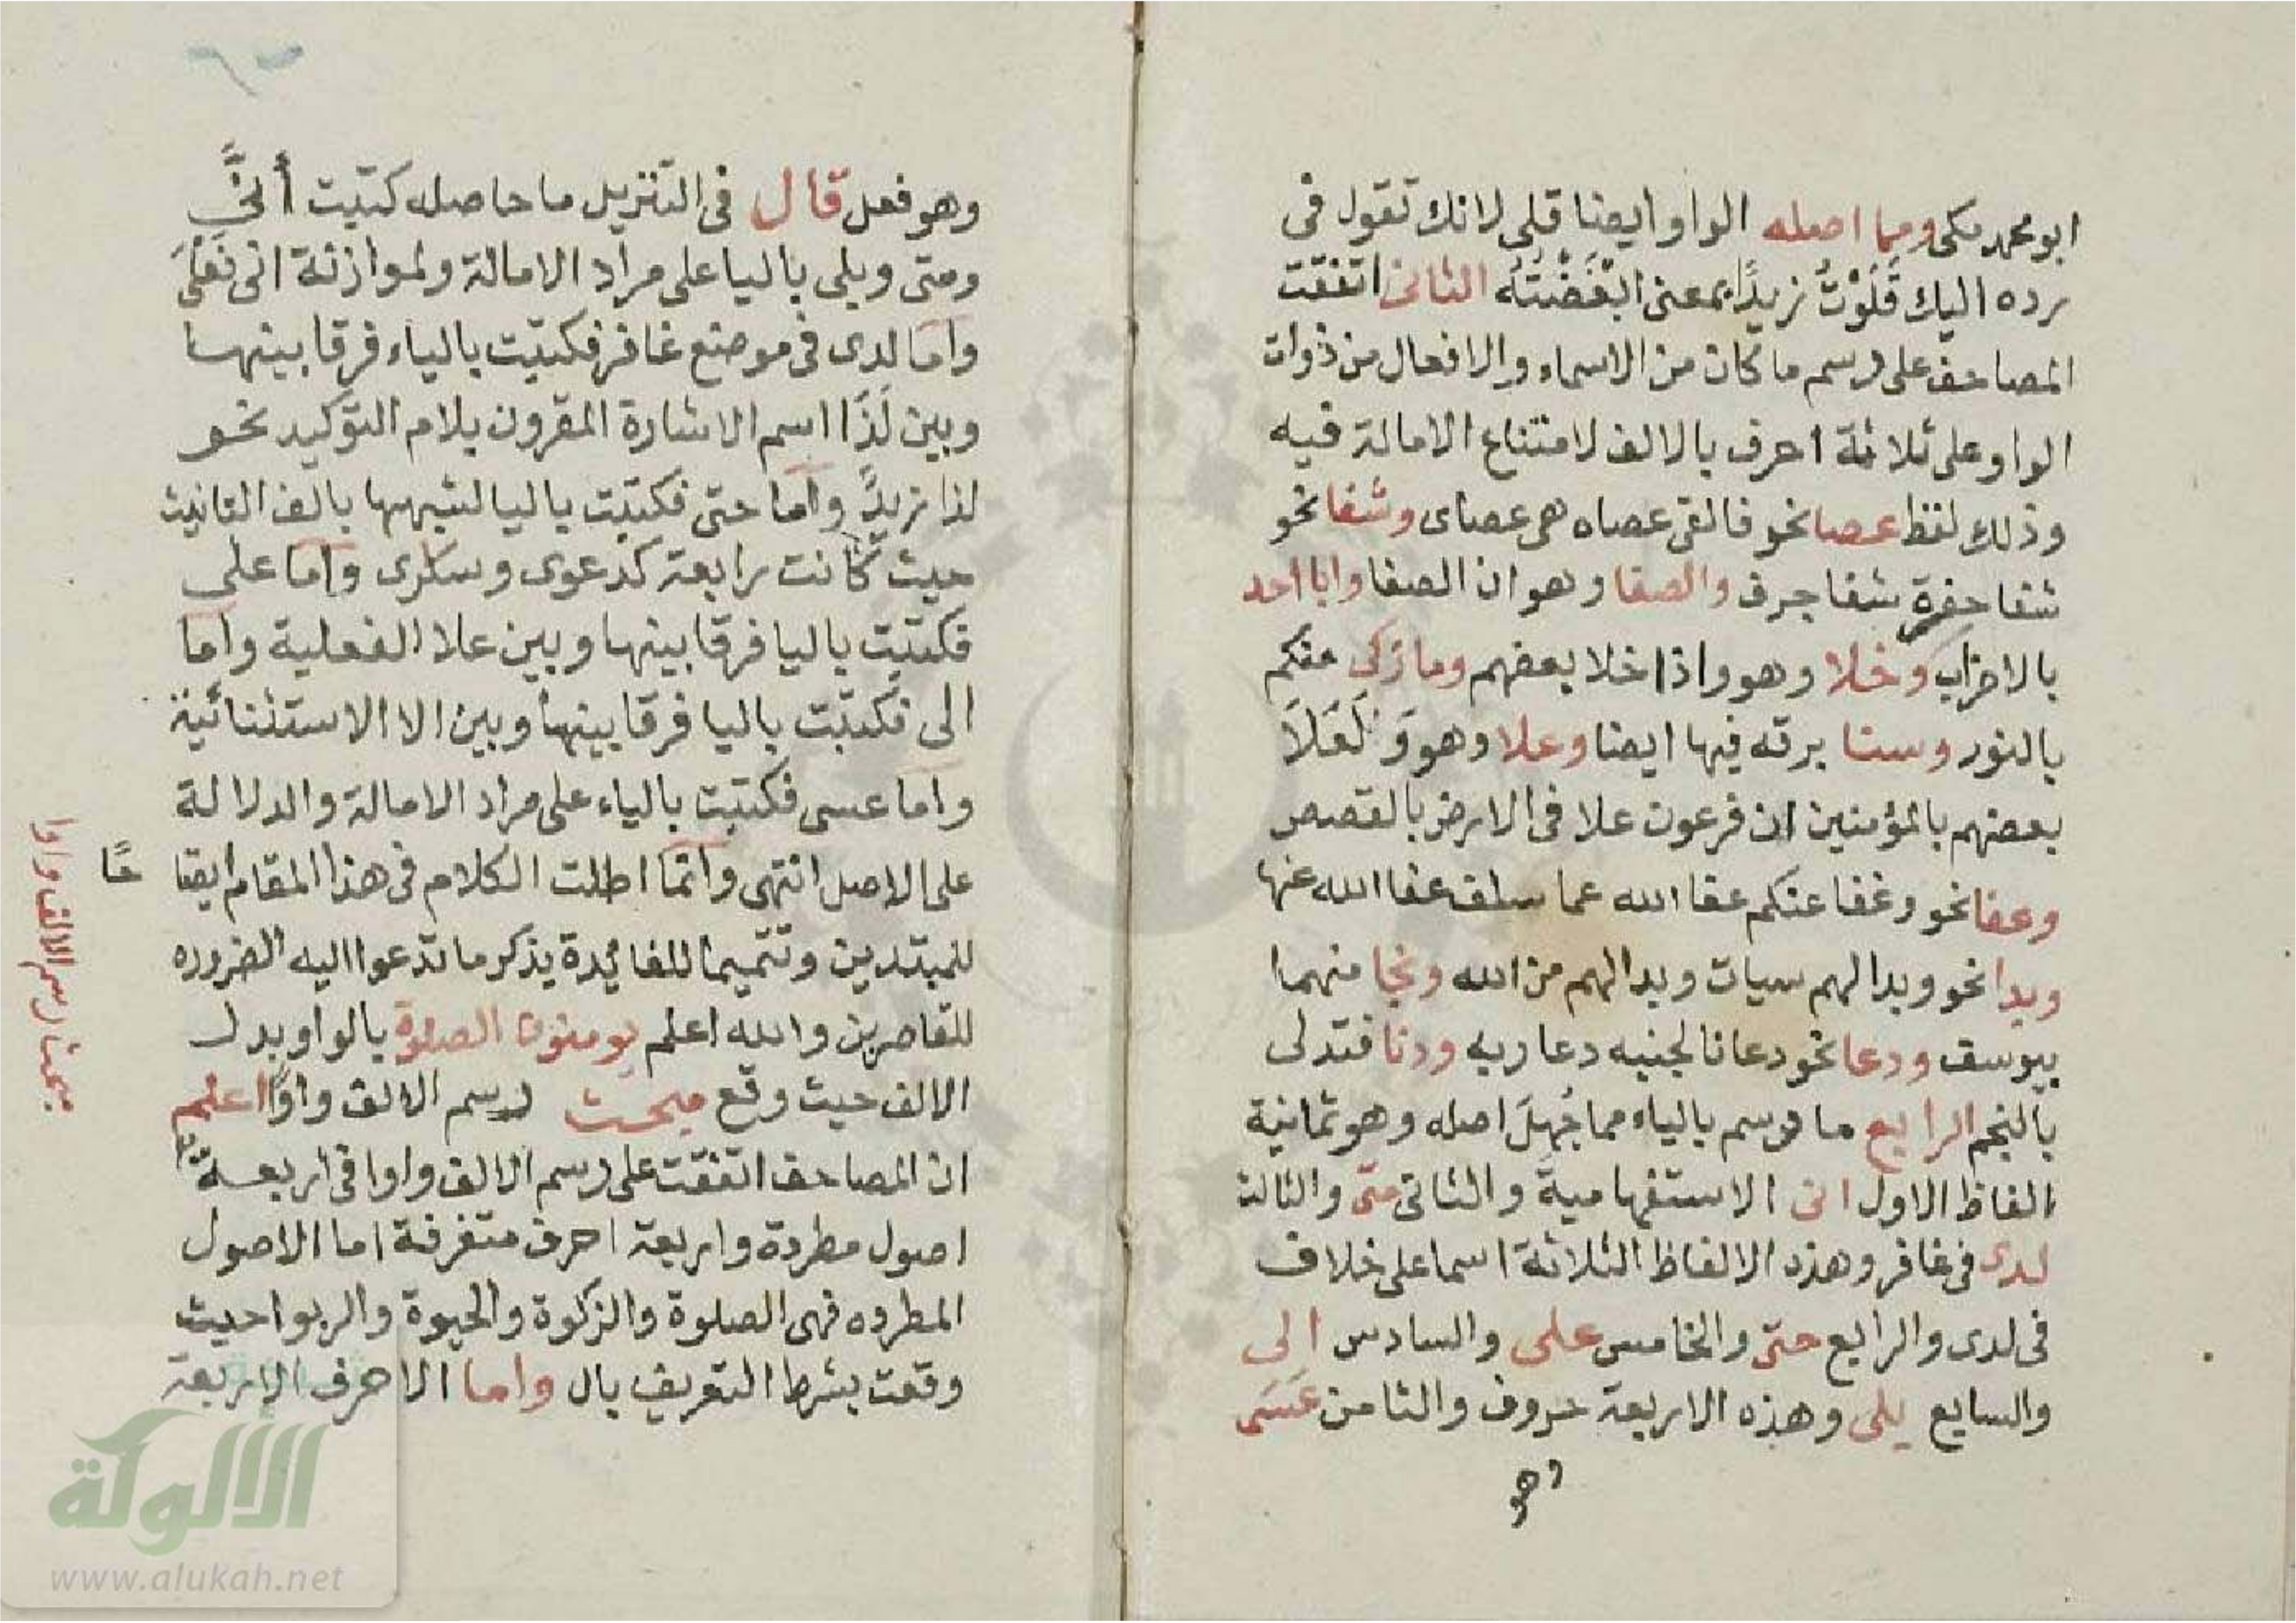 ابو محمد مكى ومما اصله الواو ايضا قلى لانك تقول فى
رده اليك قَلَوْتُ زيدًا بمعنى ابْغَضْتُه الثانى اتفقت
المصاحف على رسم ما كان من الاسماء والافعال من ذوات
الواو على ثلاثة احرف بالالف لامتناع الامالة فيه
وذلك لفظ عصا نحو فالقى عصاه هى عصاى وشفا نحو
شفا حفرة شفا جرف والصفا وهو ان الصفا وابا احد
بالاحزاب وخلا وهو واذا خلا بعضهم وما زكى منكم
بالنور وسنا برقه فيها ايضا وعلا وهو وَلَعَلَا
بعضهم بالمؤمنين ان فرعون علا فى الارض بالقصص
وعفا نحو وعفا عنكم عفا الله عما سلف عفا الله عنها
وبدا نحو وبدا لهم سيات وبدا لهم من الله ونجا منهما
بيوسف ودعا نحو دعانا لجنبه دعا ربه ودنا فتدلى
بالنجم الرابع ما رسم بالياء مما جُهِلَ اصله وهو ثمانية
الفاظ الاول انى الاستفهامية والثانى متى والثالث
لدى فى غافر وهذه الالفاظ الثلاثة اسما على خلاف
فى لدى والرابع حتى والخامس على والسادس الى
والسابع بلى وهذه الاربعة حروف والثامن عَسَى
وهو
وهو فعل قال فى التنزيل ما حاصله كتبت أنَّى
ومتى وبلى باليا على مراد الامالة ولموازنة انى فَعْلَى
واما لدى فى موضع غافر فكتبت بالياء فرقا بينها
وبين لَذَا اسم الاشارة المقرون بلام التوكيد نحو
لذا زيدٌ واما حتى فكتبت باليا لشبهها بالف التانيث
حيث كانت رابعة كدعوى وسكرى واما على
فكتبت باليا فرقا بينها وبين علا الفعلية واما
الى فكتبت باليا فرقا بينها وبين الا الاستثنائية
واما عسى فكتبت بالياء على مراد الامالة والدلالة
على الاصل انتهى وانما اطلت الكلام فى هذا المقام ايضا حًا
للمبتدين وتتميما للفائدة بذكر ما تدعوا اليه الضروره
للقاصرين والله اعلم يومنون الصلوة بالواو بدل
الالف حيث وقع مبحث رسم الالف واوًا اعلم
ان المصاحف اتفقت على رسم الالف واوا فى اربعة
اصول مطردة واربعة احرف متفرقة اما الاصول
المطرده فهى الصلوة والزكوة والحيوة والربوا حيث
وقعت بشرط التعريف بال واما الاحرف الاربعة
مبحث رسم الالف واوا
الألوكة
www.alukah.net